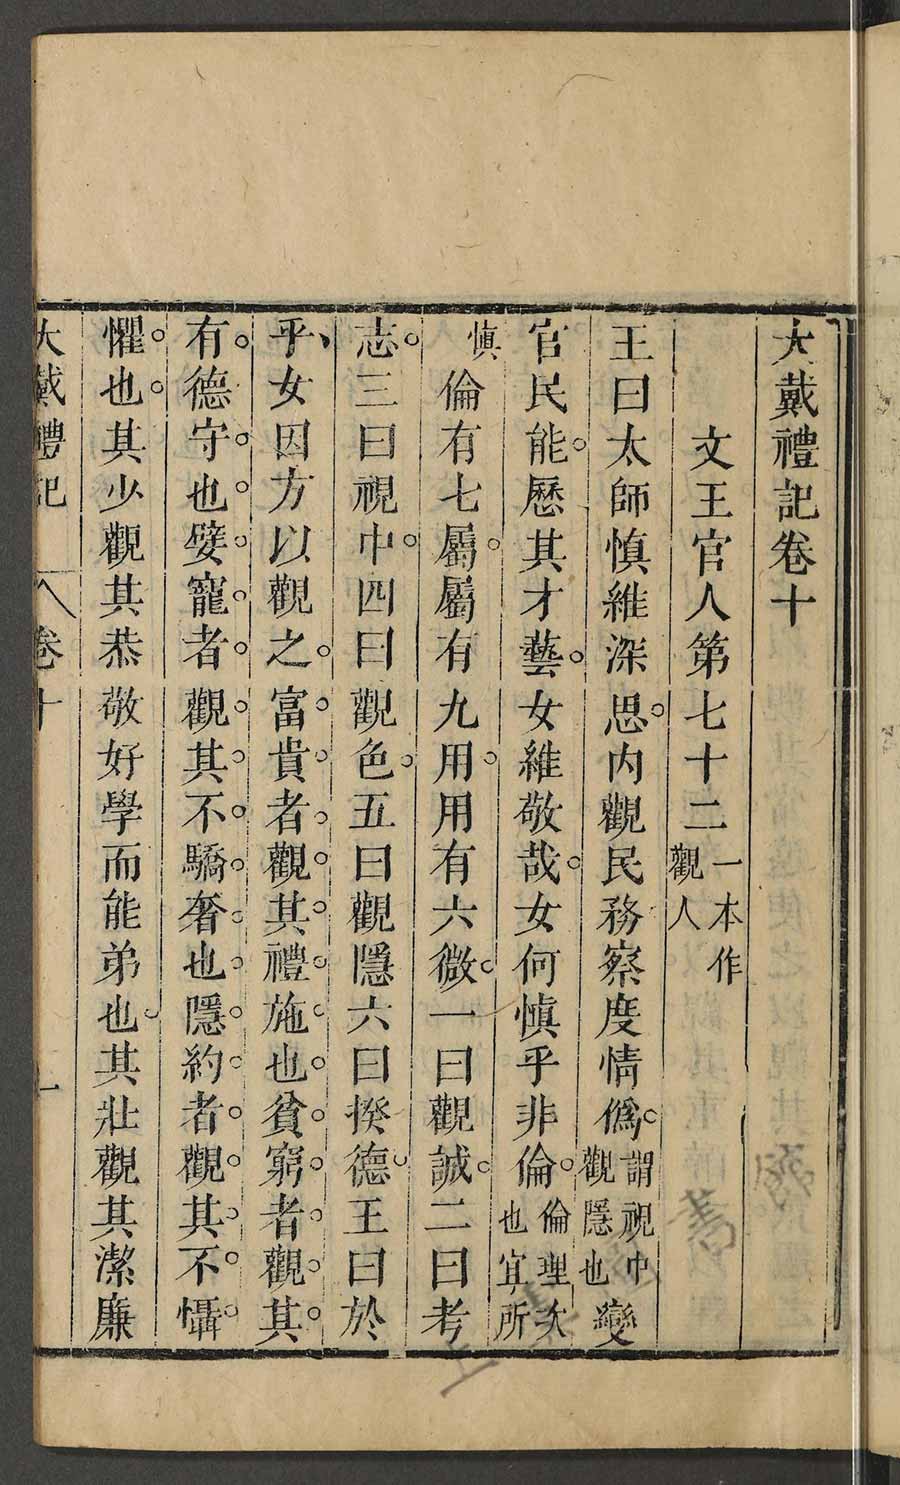 大戴禮記卷十
文王官人第七十二一本作觀人
王曰太師慎維深思內觀民務察度情僞謂視中觀隱也變
官民能歷其才藝女維敬哉女何慎乎非倫倫理次也宜所
慎倫有七屬屬有九用用有六微一曰觀誠二曰考
志三曰視中四曰觀色五曰觀隱六曰揆德王曰於
乎女因方以觀之富貴者觀其禮施也貧窮者觀其
有德守也嬖寵者觀其不驕奢也隱約者觀其不懾
懼也其少觀其恭敬好學而能弟也其壯觀其潔廉
大戴禮記 卷十 一